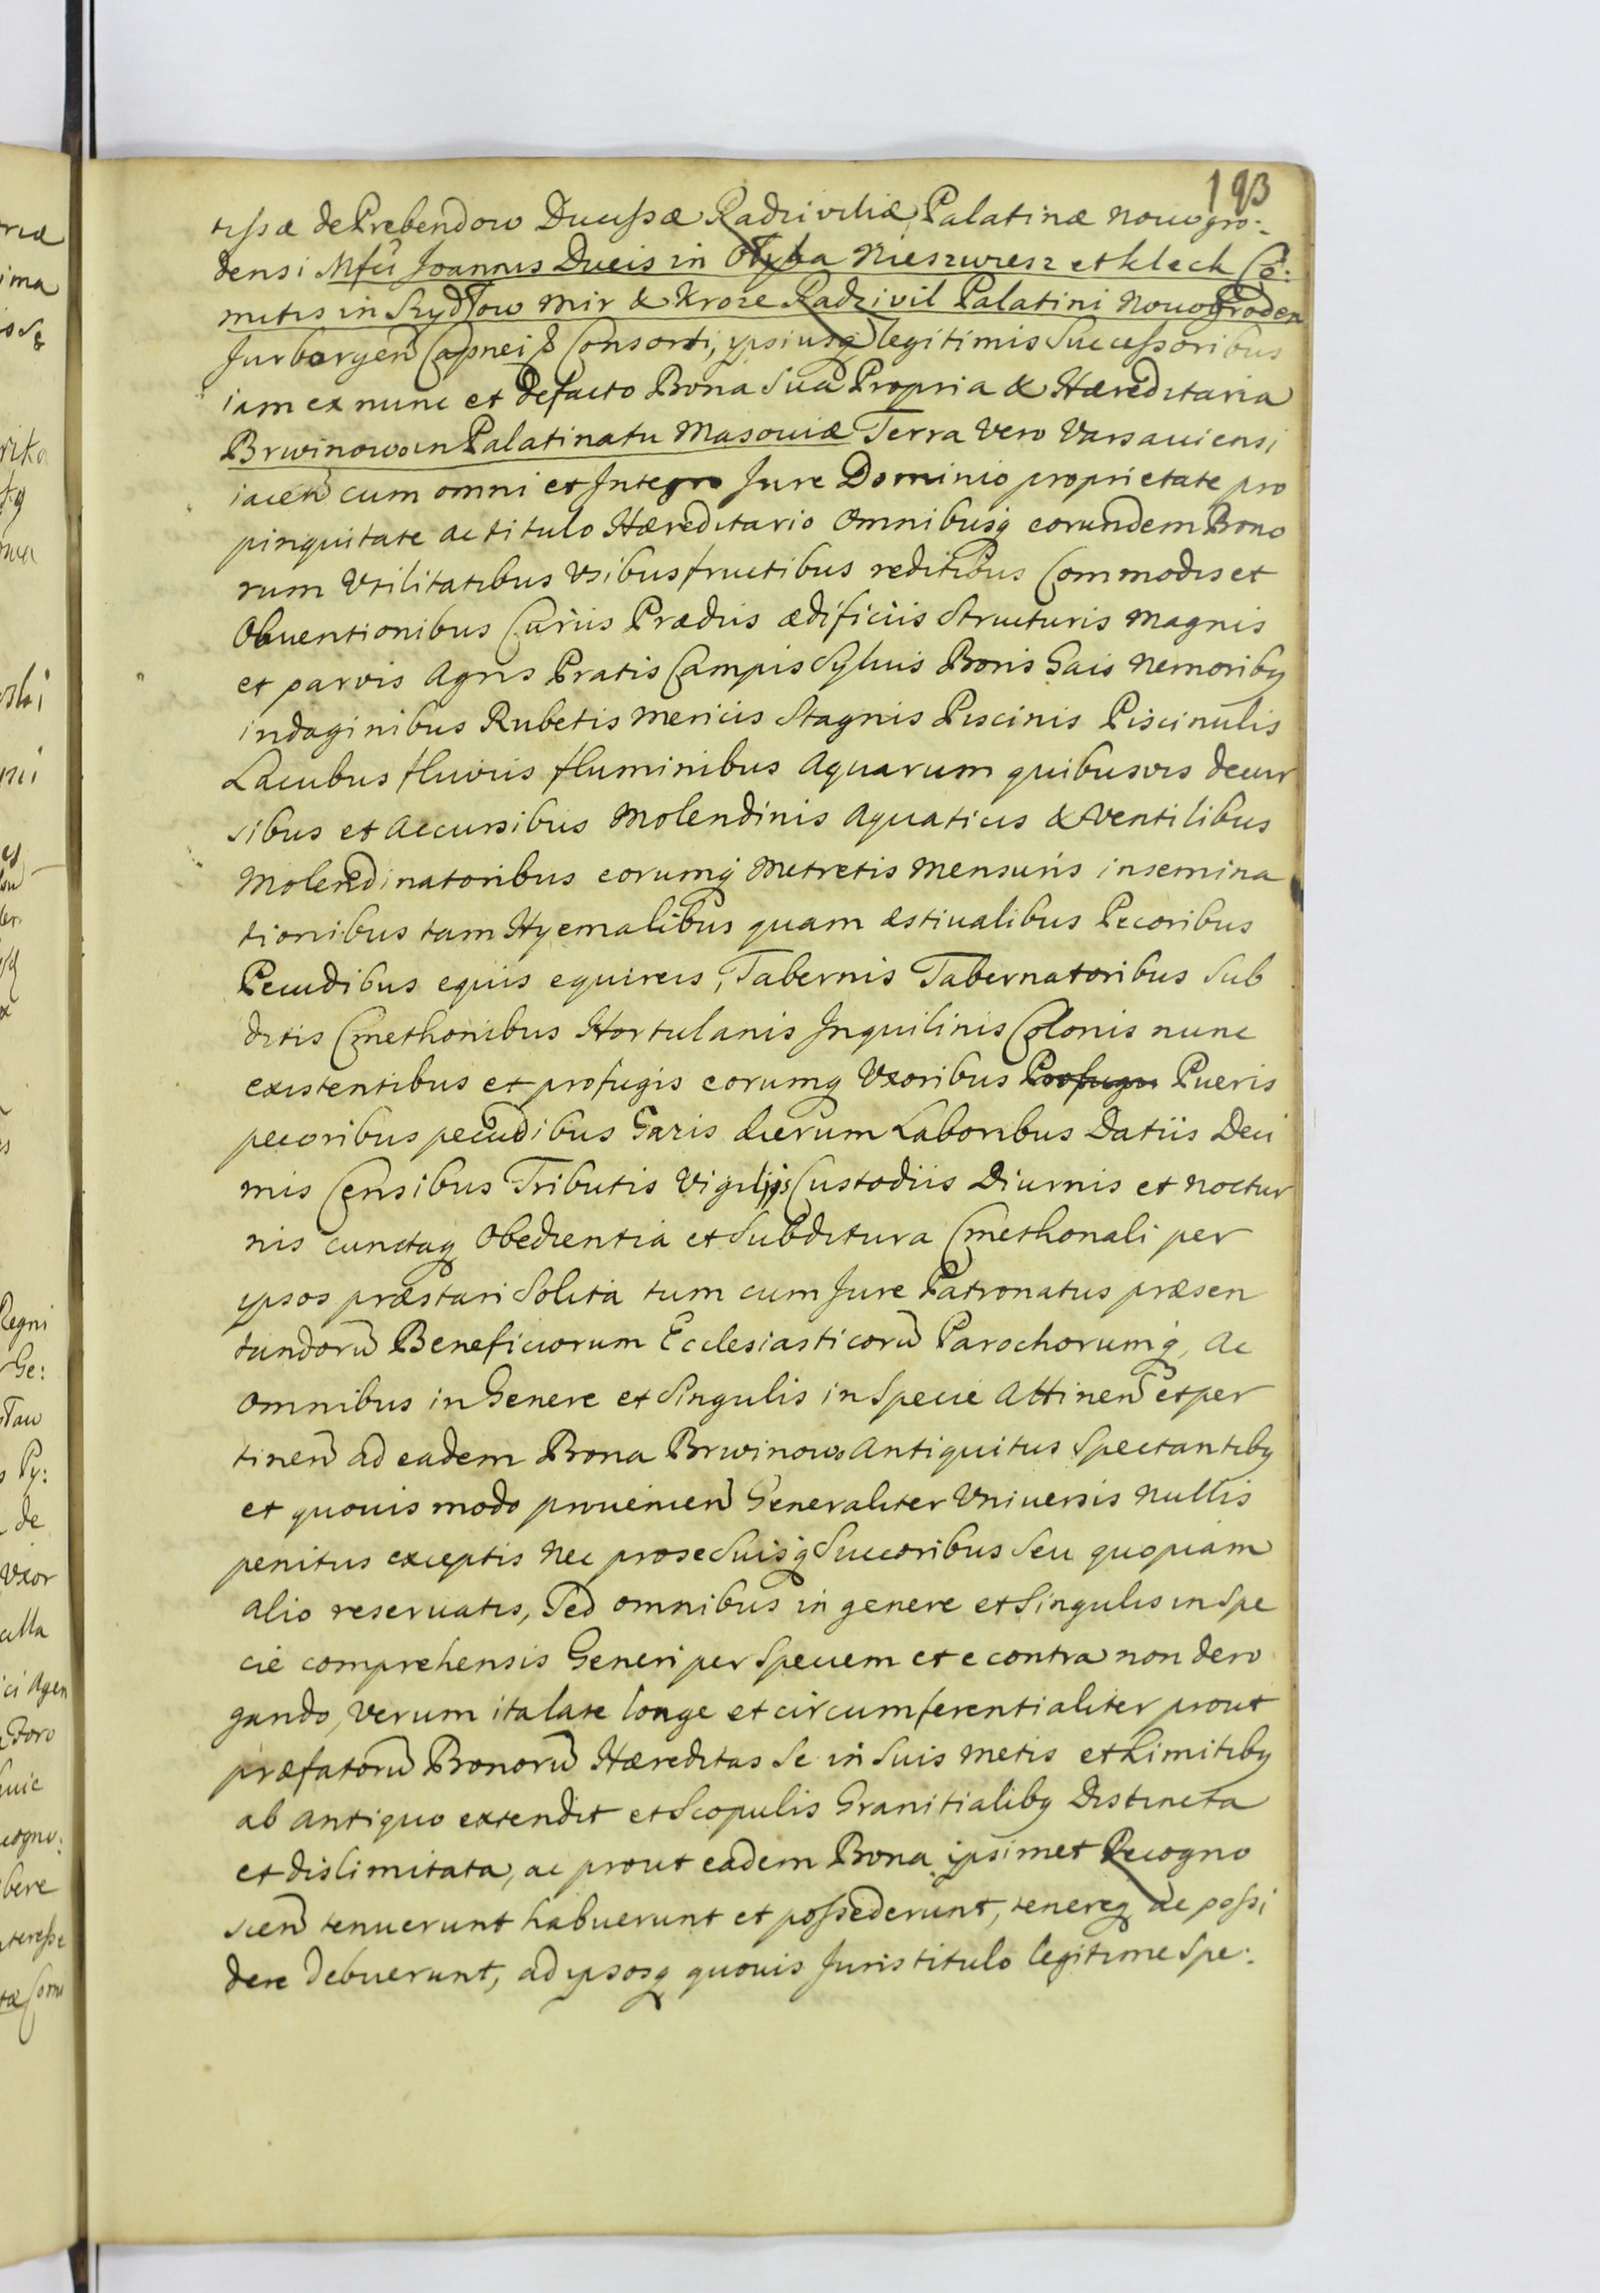 193
tissæ de Prebendow Ducissæ Radziviliæ Palatinæ Novogro:
densi Mfci Joannis Ducis in Ołyka Nieszwiesz et kleck Co:
mitis in Szydłow Mir & Kroze Radzivil Palatini Novogroden
Jurborgen Capnei & Consorti, ipsiusq legitimis Successoribus
iam ex nunc et de facto Bona Sua Propria & Hæreditaria
Brwinowo in Palatinatu Masoviæ Terra Vero Varsaviensi
iacen cum omni et Integro Jure Dominio proprietate pro
pinquitate ac titulo Hæreditario Omnibusq eorundem Bono
rum Utilitatibus Usibus fructibus reditibus Commodis et
Obventionibus Curiis Prædiis ædificiis Structuris Magnis
et parvis Agris Pratis Campis Sylvis Boris Gais Nemoribq
indaginibus Rubetis Mericis Stagnis Piscinis Piscinulis
Lacubus fluviis fluminibus Aquarum quibusvis decur
sibus et Accursibus Molendinis Aquaticis & Ventilibus
Molendinatoribus eorumq Metretis Mensuris insemina
tionibus tam Hyemalibus quam æstivalibus Pecoribus
Pecudibus equis equireis, Tabernis Tabernatoribus Sub
ditis Cmethonibus Hortulanis Inquilinis Colonis nunc
existentibus et profugis eorumq Uxoribus Profugis Pueris
pecoribus pecudibus Gazis dierum Laboribus Datiis Deci
mis Censibus Tributis Vigilijs Custodiis Diurnis et Noctur
nis cunctaq Obedientia et Subditura Cmethonali per
ipsos præstari Solita tum cum Jure Patronatus præsen
tandorū Beneficiorum Ecclesiasticorū Parochorumq, Ac
Omnibus in Genere et Singulis in Specie Attinen et per
tinen ad eadem Bona Brwinowo Antiquitus Spectantibq
et quovis modo provenien Generaliter Universis Nullis
penitus exceptis Nec pro se Suisq Succoribus Seu quopiam
alio reservatis, Sed omnibus in genere et Singulis in Spe
cie comprehensis Generi per Speciem et e contra non dero
gando, Verum ita late longe et circumferentialiter prout
præfatorū Bonorū Hæreditas Se in Suis Metis et Limitibq
ab antiquo extendit et Scopulis Granitialibq Distincta
et dislimitata, ac prout eadem Bona ipsimet Recogno
scen tenuerunt habuerunt et possederunt, tenereq ac possi
dere debuerunt, ad ipsosq quovis Juris titulo legitime Spe: